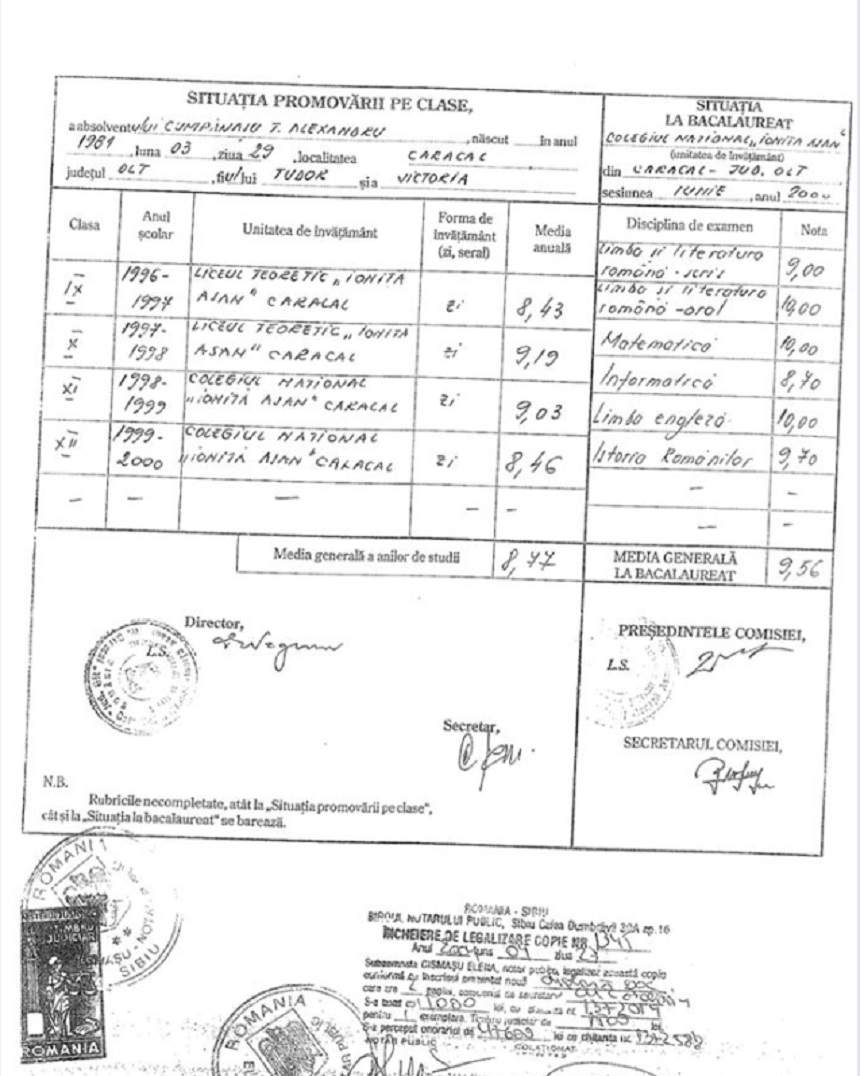 SITUAȚIA PROMOVĂRII PE CLASE,
a absolventului CUMPĂNAȘU T. ALEXANDRU, născut în anul
1981, luna 03, ziua 29, localitatea CARACAL
județul OLT, fiu/lui TUDOR și a VICTORIA
SITUAȚIA
LA BACALAUREAT
COLEGIUL NAȚIONAL „IONIȚĂ ASAN"
(unitatea de învățământ)
din CARACAL - JUD. OLT
sesiunea IUNIE, anul 2000
Clasa Anul școlar Unitatea de învățământ Forma de învățământ (zi, seral) Media anuală
IX 1996-1997 LICEUL TEORETIC „IONIȚĂ ASAN" CARACAL zi 8,43
X 1997-1998 LICEUL TEORETIC „IONIȚĂ ASAN" CARACAL zi 9,19
XI 1998-1999 COLEGIUL NAȚIONAL „IONIȚĂ ASAN" CARACAL zi 9,03
XII 1999-2000 COLEGIUL NAȚIONAL „IONIȚĂ ASAN" CARACAL zi 8,46
Media generală a anilor de studii 8,77
Disciplina de examen Nota
Limba și literatura română - scris 9,00
Limba și literatura română - oral 10,00
Matematică 10,00
Informatică 8,70
Limba engleză 10,00
Istoria Românilor 9,70
MEDIA GENERALĂ LA BACALAUREAT 9,56
Director,
L.S.
Secretar,
PREȘEDINTELE COMISIEI,
L.S.
SECRETARUL COMISIEI,
N.B.
Rubricile necompletate, atât la „Situația promovării pe clase",
cât și la „Situația la bacalaureat" se barează.
ROMANIA
NOTAR
SIBIU
TIMBRU
JUDICIAR
ROMANIA
ROMANIA
ROMANIA - SIBIU
BIROUL NOTARULUI PUBLIC, Sibiu Calea Dumbrăvii 30A ap. 16
ÎNCHEIERE DE LEGALIZARE COPIE NR.
Anul luna ziua
Subsemnata CISMAȘU ELENA, notar public, legalizez această copie
conformă cu înscrisul prezentat nouă
care are
S-a taxat cu 11000 lei, cu chitanța nr.
pentru 1 exemplare. Timbru judiciar de lei
S-a perceput onorariul de 47600 lei cu chitanța nr.
NOTAR PUBLIC
COLAȚIONAT